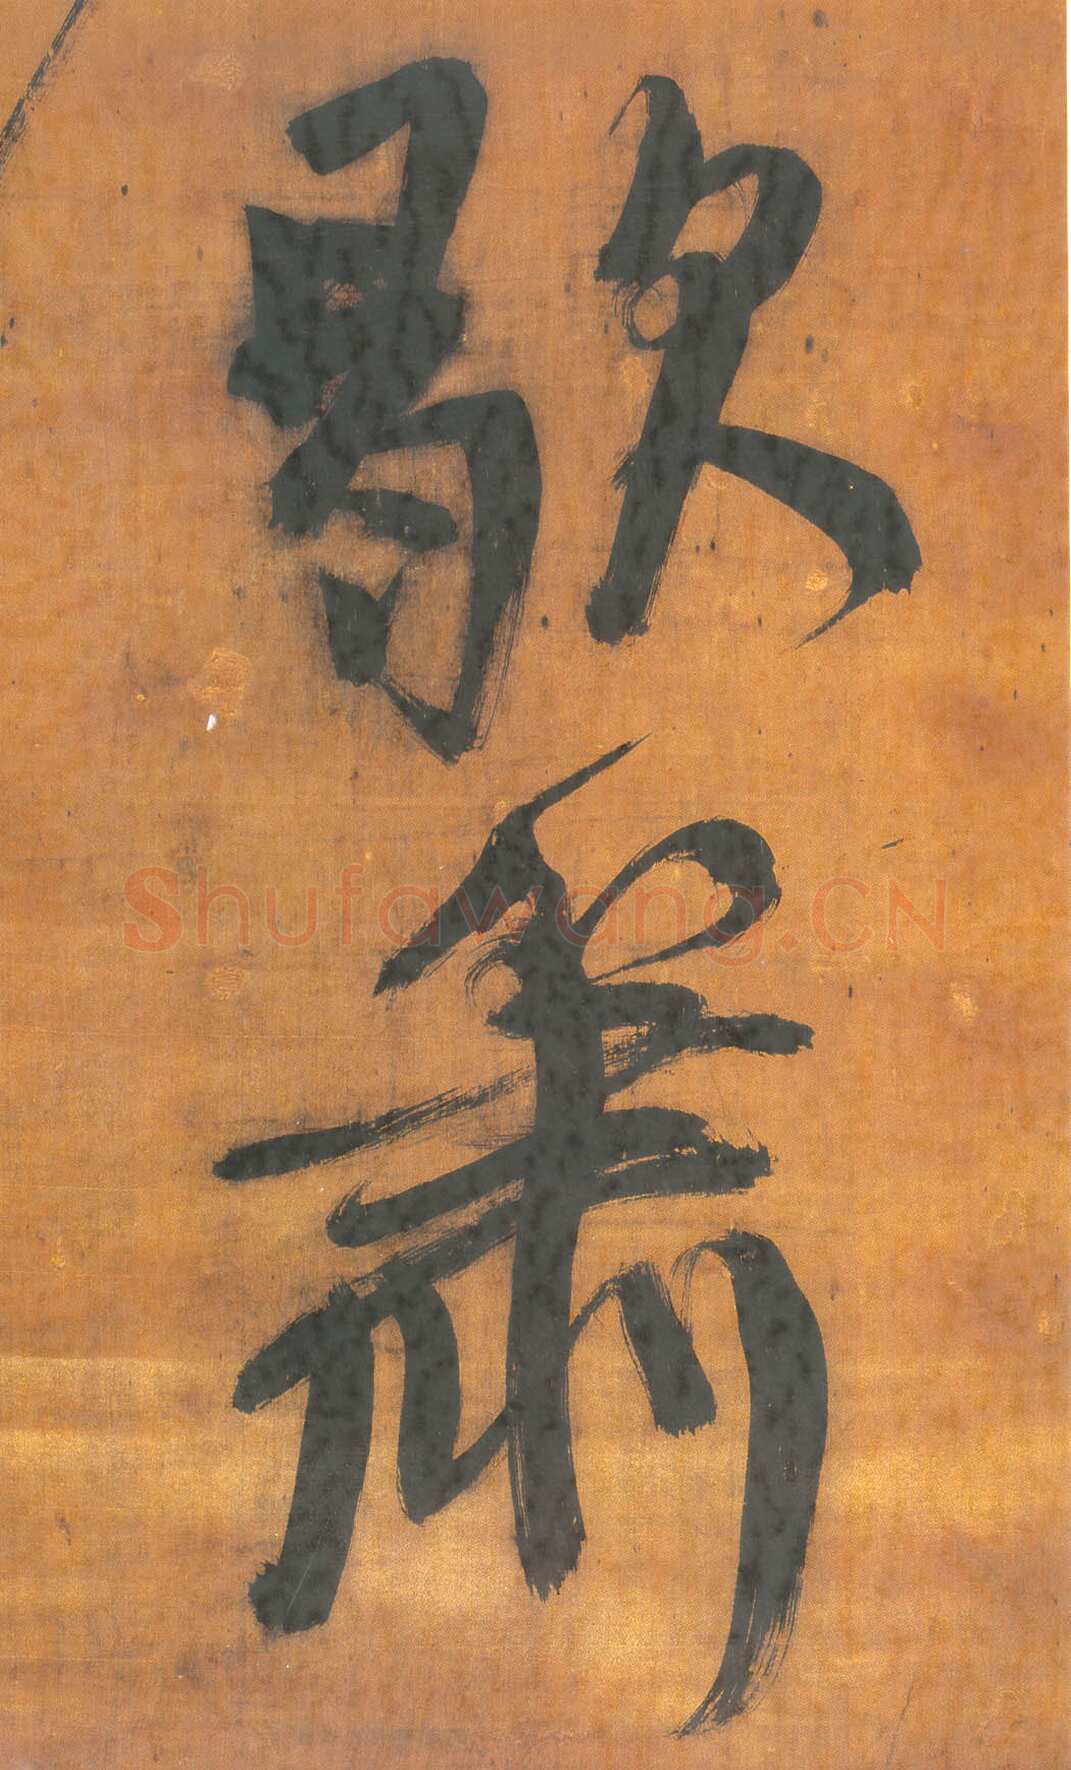 歇簫
Shufawang.CN